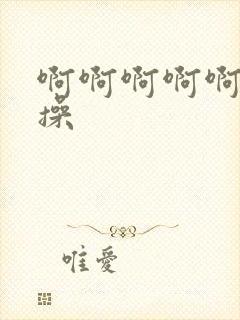 啊啊啊啊啊
操
唯爱